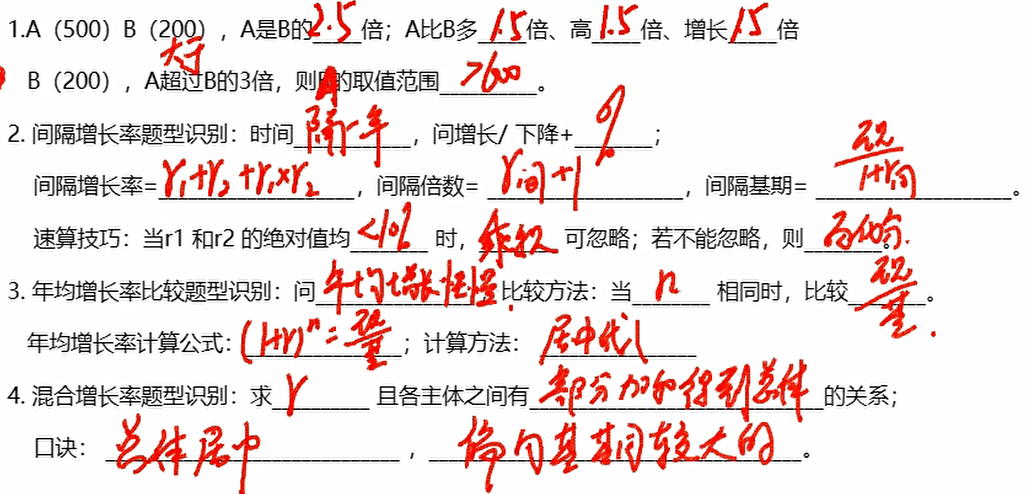 1.A（500）B（200），A是B的2.5倍；A比B多1.5倍、高1.5倍、增长1.5倍
大于
B（200），A超过B的3倍，则A的取值范围>600。
2. 间隔增长率题型识别：时间隔一年，问增长/ 下降+%；
间隔增长率=r₁+r₂+r₁×r₂，间隔倍数=r间+1，间隔基期=现/1+r间。
速算技巧：当r1 和r2 的绝对值均<10%时，乘积可忽略；若不能忽略，则百化分。
3. 年均增长率比较题型识别：问年均增长快慢，比较方法：当n相同时，比较现/基。
年均增长率计算公式：(1+r)ⁿ=现/基；计算方法：居中代入
4. 混合增长率题型识别：求r且各主体之间有部分加和得到总体的关系；
口诀：总体居中，偏向基期较大的。